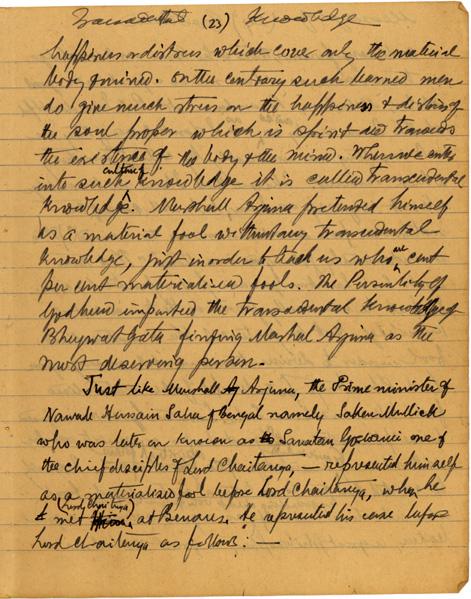 Transcendental (23) Knowledge
happiness or distress which cover only the material
body & mind. On the contrary such learned men
do give much stress on the happiness & distress of
the soul proper which is spirit and transcends
the existence of the body & the mind. When we enter
into such culture of knowledge it is called transcendental
knowledge. Marshall Arjuna pretended himself
as a material fool without any transcendental
knowledge, just in order to teach us who are cent
per cent materialised fools. The Personality of
Godhead imparted the transcendental knowledge of
Bhagwat Geeta finding Marshal Arjuna as the
most deserving person.
Just like Marshall Arjuna, the Prime minister of
Nawab Hussain Saha of Bengal namely Saker Mullick
who was later on known as Sanatan Goswami one of
the chief disciples of Lord Chaitanya, — represented himself
as a materialised fool before Lord Chaitanya, when he
met (Lord Chaitanya) at Benares. He represented his case before
Lord Chaitanya as follows: —